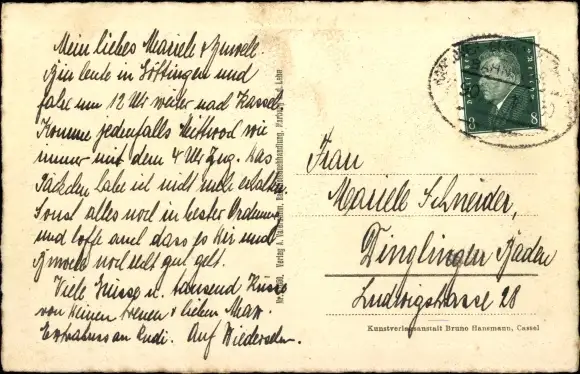 Mein liebes Mariele &
Bin heute in Göttingen und
fahre um 12 Uhr weiter nach Kassel
Komme jedenfalls Mittwoch wie
immer mit dem 4 Uhr Zug. Das
Päckchen habe ich nicht mehr erhalten.
Sonst alles noch in bester Ordnung
und hoffe auch dass es Dir und
noch recht gut geht.
Viele Grüsse u. tausend Küsse
von Deinem treuen & lieben Max.
Auf Wiedersehn.
Frau
Mariele Schneider,
Dinglingen Baden
Ludwigstrasse 28
Kunstverlagsanstalt Bruno Hansmann, Cassel
8 8